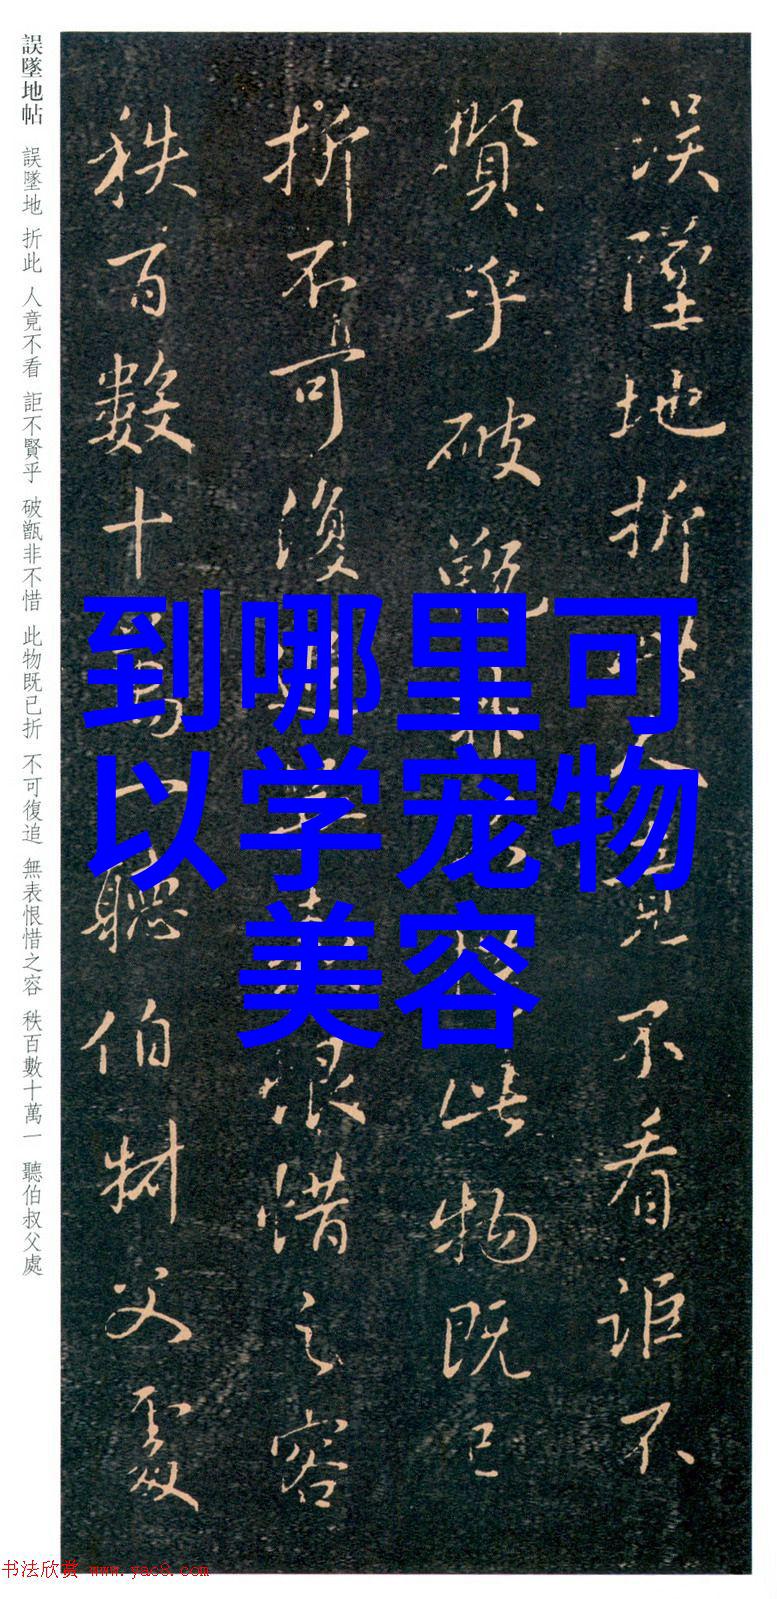 誤墜地折此人竟不看詎不
賢乎破甑非不惜此物既已
折不可復追無表恨惜之容
秩百數十萬一聽伯叔父處
誤墜地帖 誤墜地 折此 人竟不看 詎不賢乎 破甑非不惜 此物既已折 不可復追 無表恨惜之容 秩百數十萬一 聽伯叔父處
到哪里可
以学宠物
美容
书法欣赏 www.yac8.com